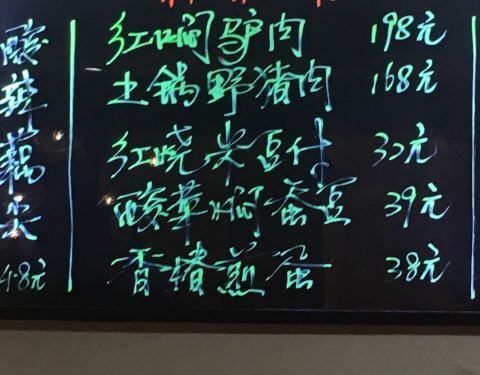 酸辣藕尖
48元
红焖驴肉 198元
土锅野猪肉 168元
红烧米豆付 32元
酸菜焖蚕豆 39元
香椿煎蛋 38元